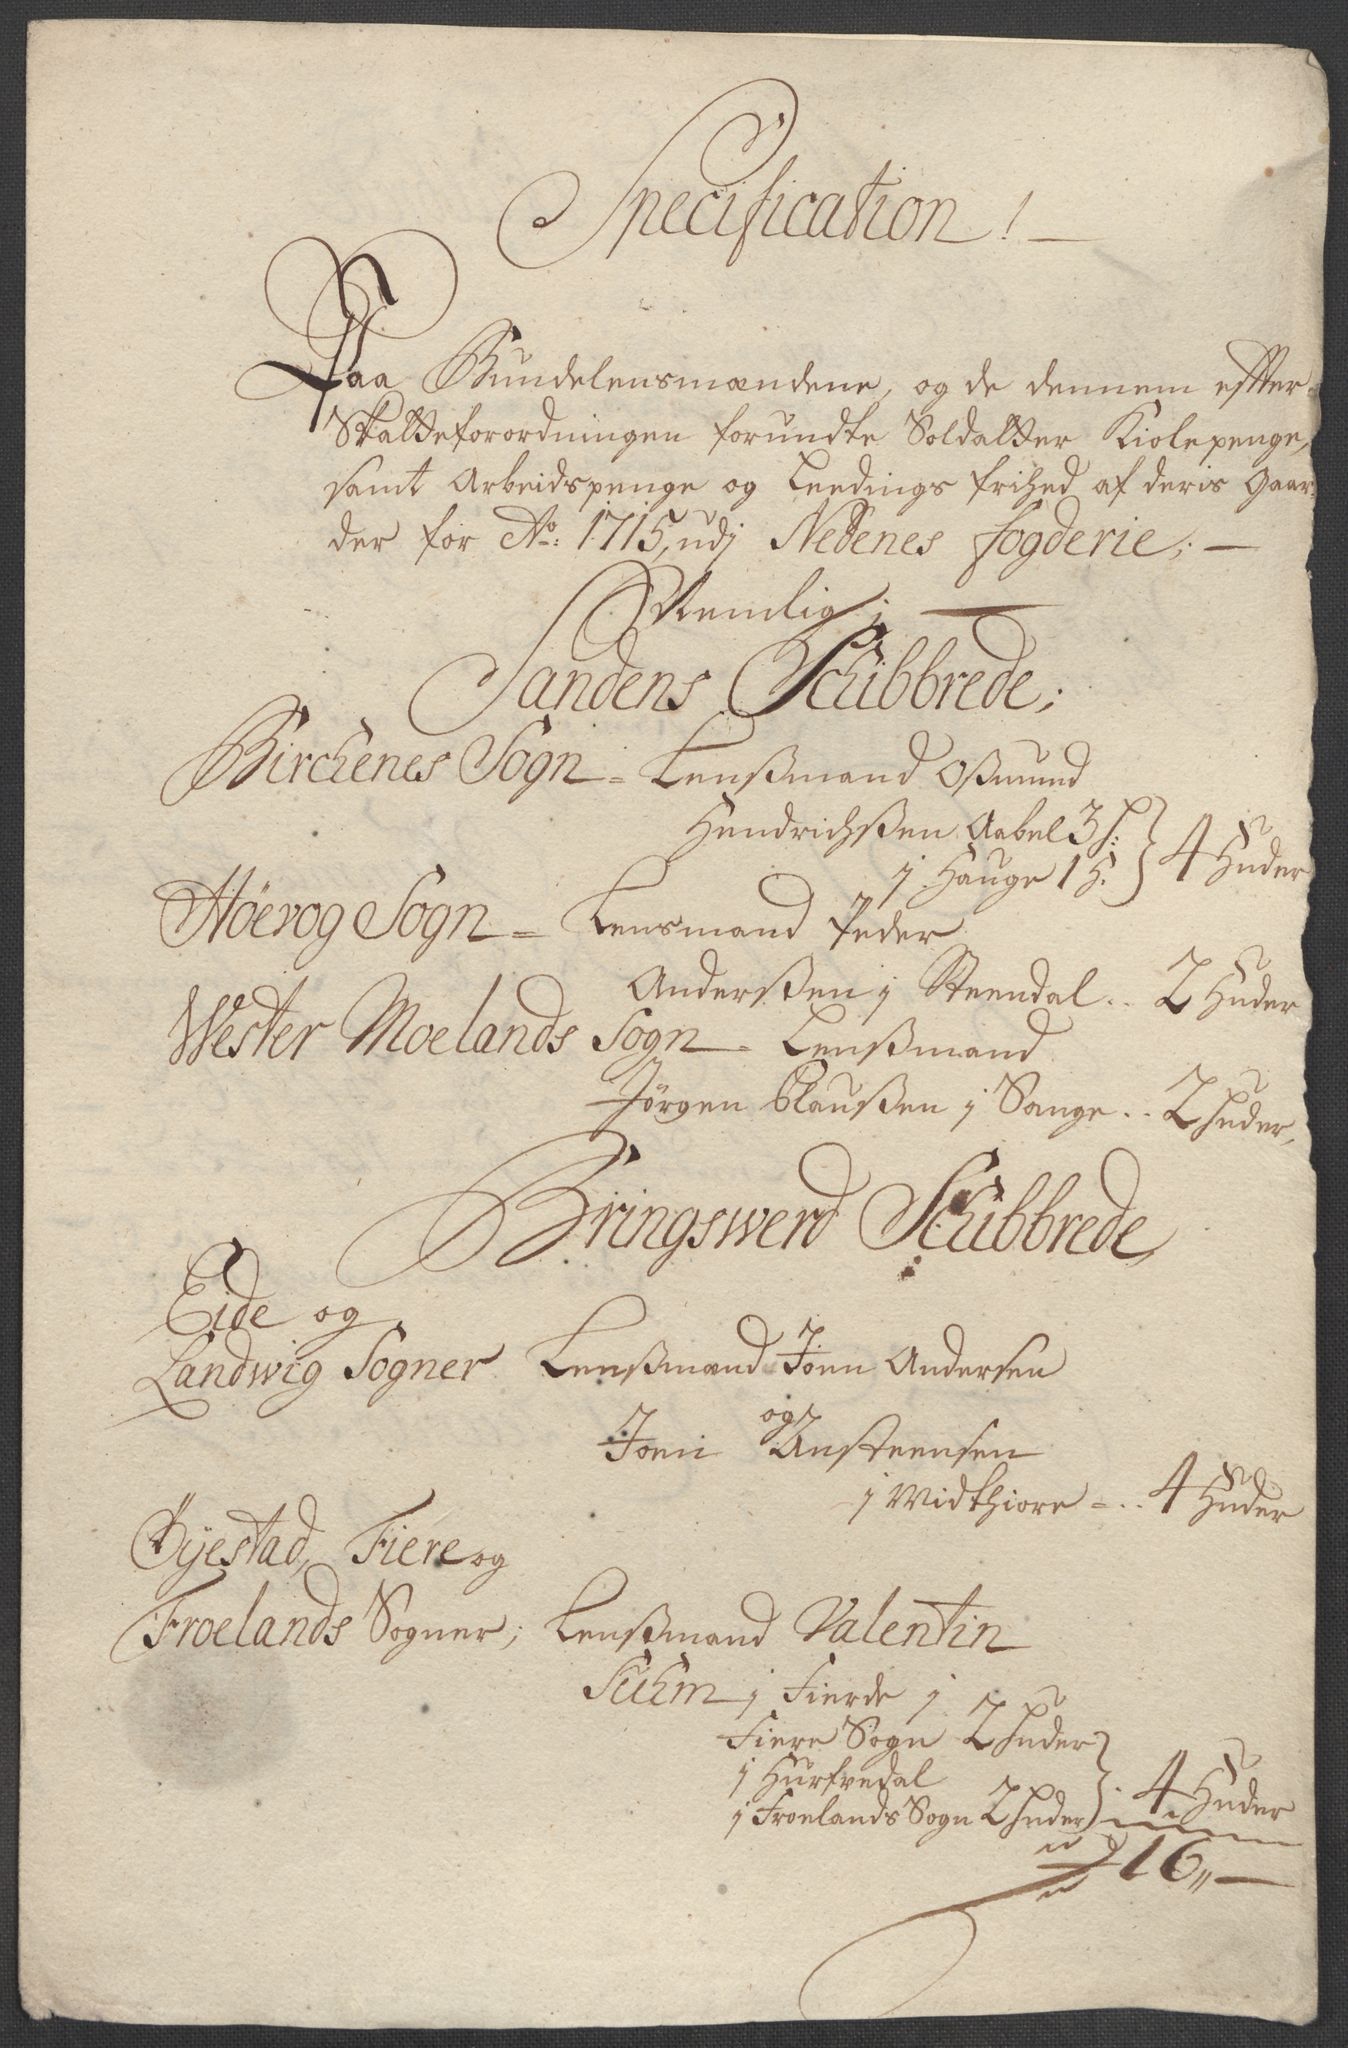 Specification! —
Paa Bundelensmændene, og de dennem effter
Skatteforordningen forundte Soldatter Kiolepenge,
samt Arbeidspenge og Leedings frihed af deris Gaar-
der for Ao: 1715, udj Nedenes fogderie; —
Nemlig;
Sandens Schibbrede;
Birchenes Sogn = Lenßmand Oßmund
Hendrichßen Aabel 3 h:
j Hauge 1 H. } 4 Huder
Höevog Sogn = Lensmand Peder
Anderßen j Steendal .. 2 Huder
Wester Moelands Sogn = Lenßmand
Jørgen Claußen j Sange .. 2 huder,
Bringswerd Schibbrede,
Eide og
Landwig Sogner Lenßmand Joen Andersen
og
Joen Ansteensen
j Widkhiore = .. 4 Huder
Øyestad, Fiere og
Froelands Sogner; Lenßmand Valentin
Suhm j Fierde j
Fiere Sogn 2 huder
j Hurfvedal
j Froelands Sogn 2 huder } . 4 Huder
16 „ —